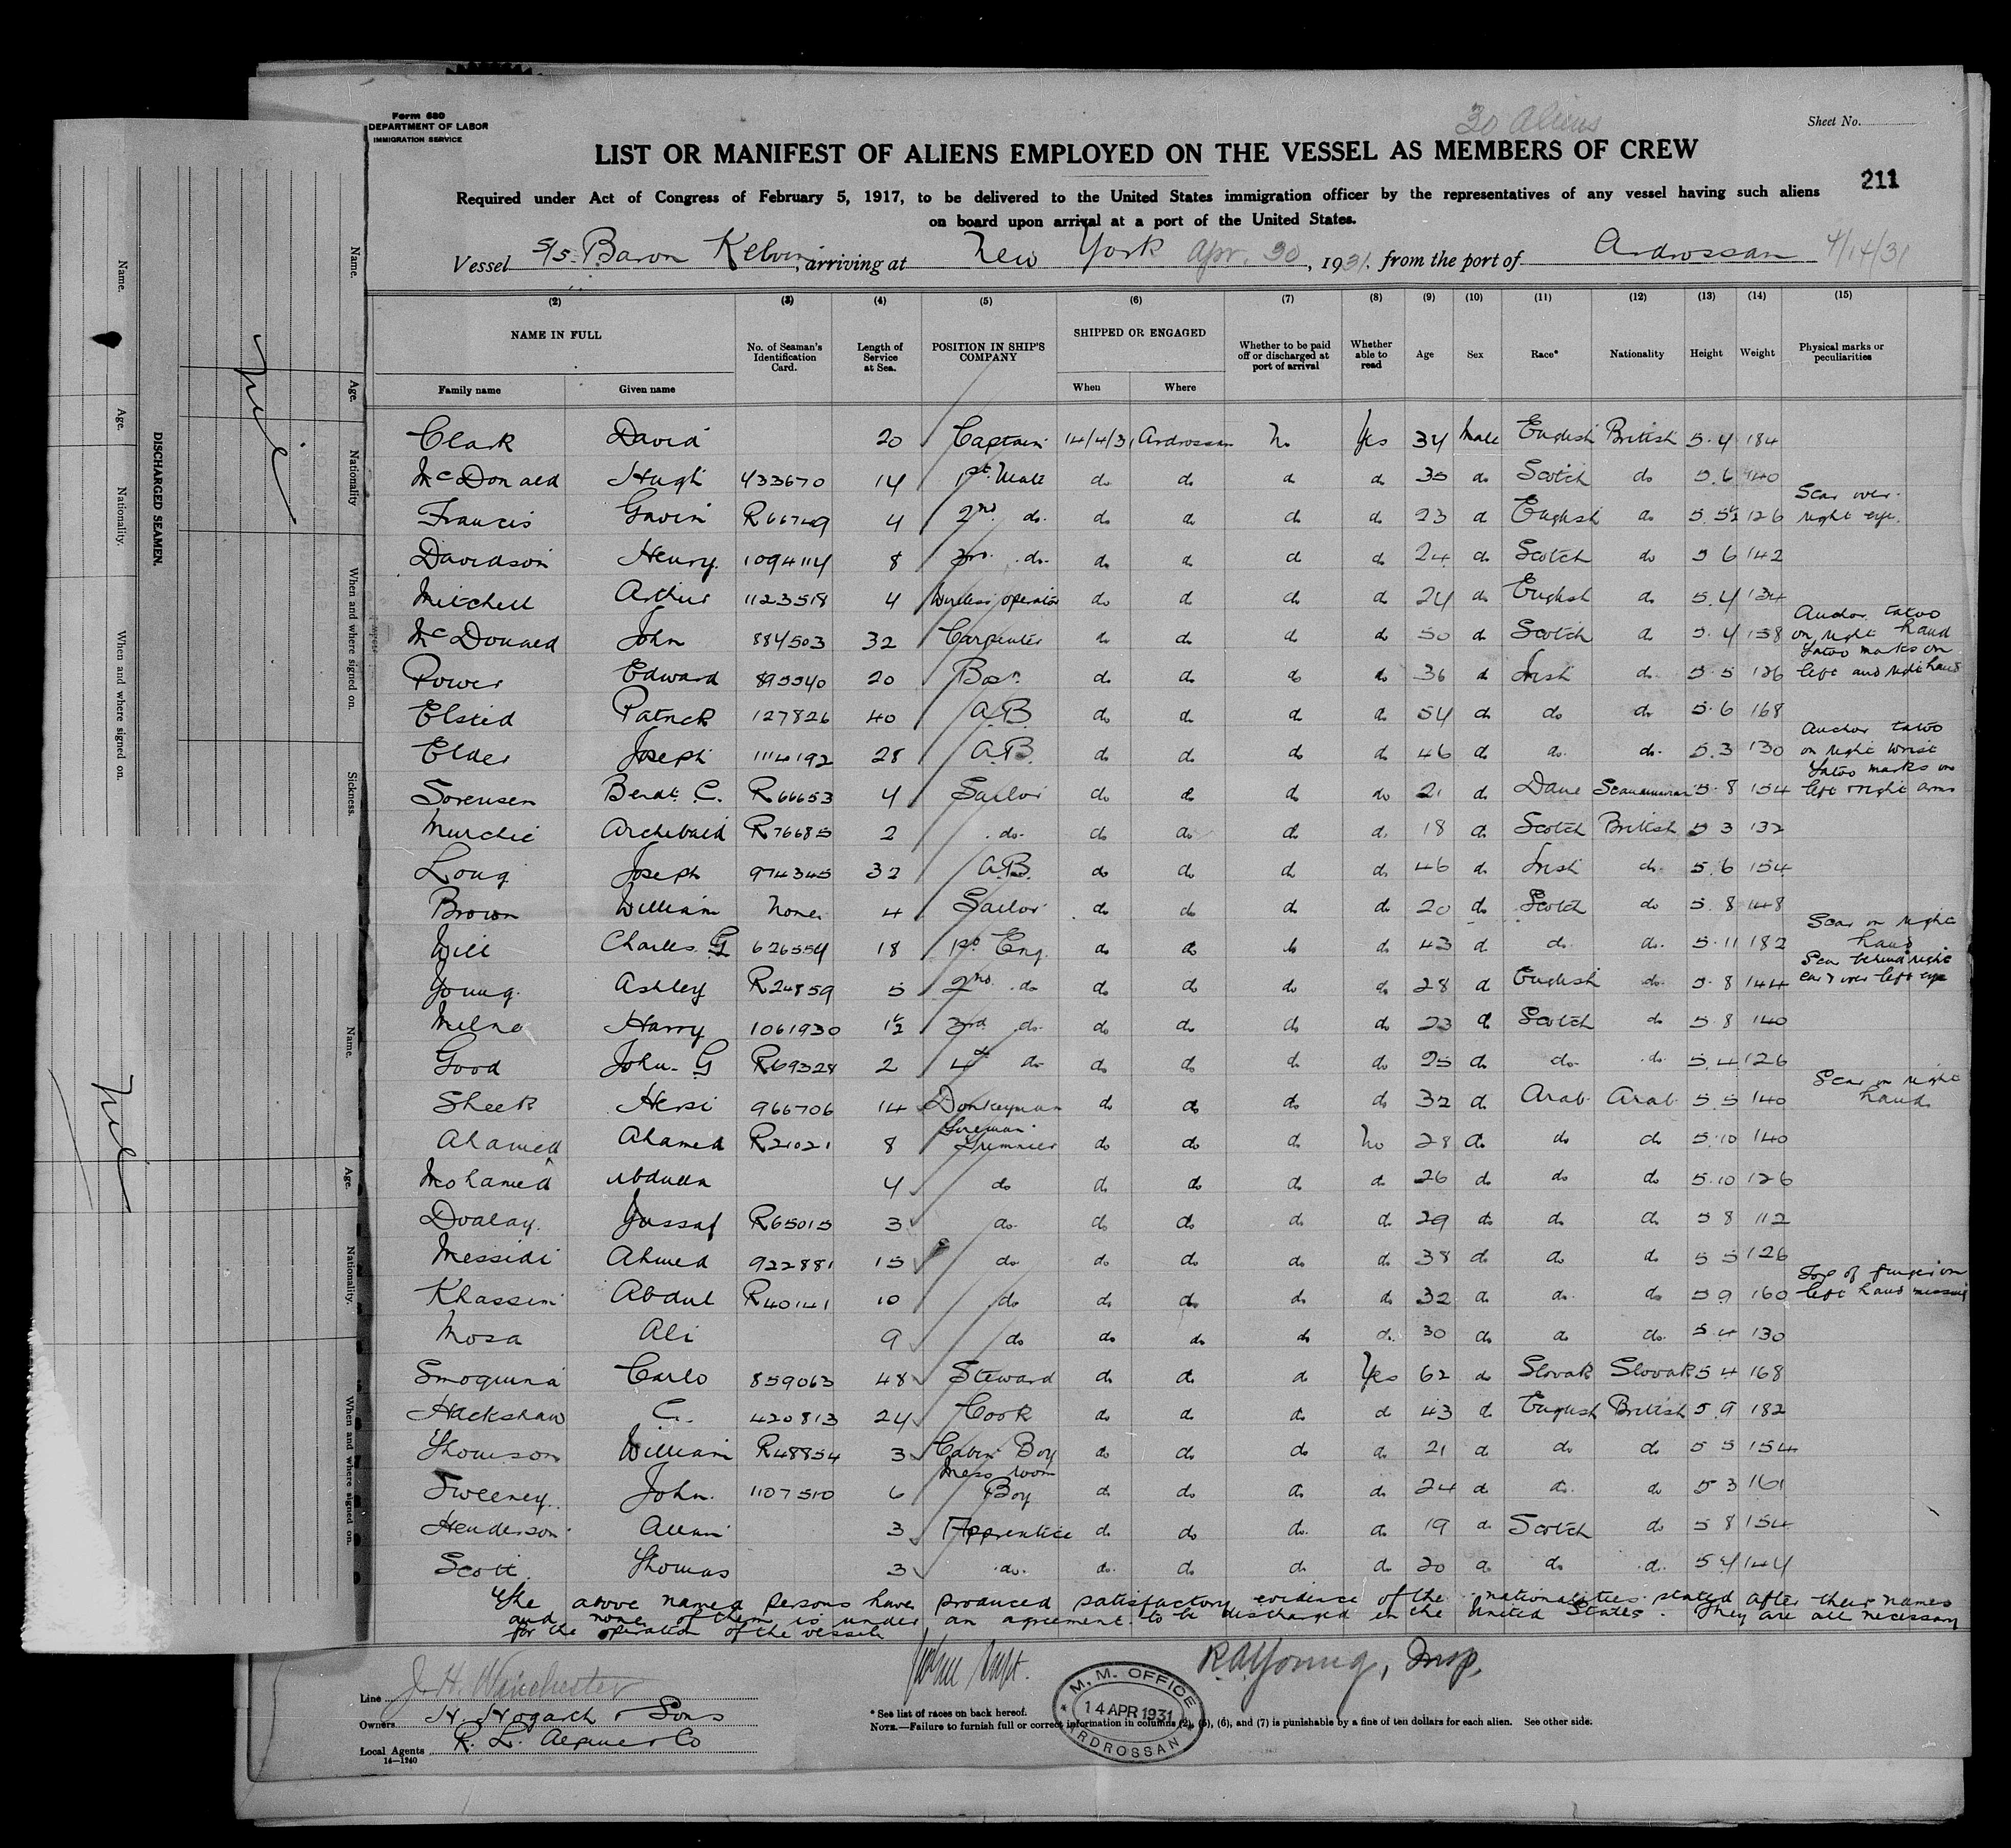 Form 680
DEPARTMENT OF LABOR
IMMIGRATION SERVICE
30 Aliens
Sheet No.
LIST OR MANIFEST OF ALIENS EMPLOYED ON THE VESSEL AS MEMBERS OF CREW
211
Required under Act of Congress of February 5, 1917, to be delivered to the United States immigration officer by the representatives of any vessel having such aliens
on board upon arrival at a port of the United States.
Vessel S/S. Baron Kelvin, arriving at New York Apr. 30, 1931. from the port of Ardrossan 4/14/31
(2) (3) (4) (5) (6) (7) (8) (9) (10) (11) (12) (13) (14) (15)
NAME IN FULL No. of Seaman's Identification Card. Length of Service at Sea. POSITION IN SHIP'S COMPANY SHIPPED OR ENGAGED Whether to be paid off or discharged at port of arrival Whether able to read Age Sex Race* Nationality Height Weight Physical marks or peculiarities
Family name Given name When Where
Clark David 20 Captain 14/4/31 Ardrossan No Yes 34 Male English British 5.4 184
McDonald Hugh 433670 14 1st Mate do do do do 35 do Scotch do 5.6 140
Francis Gavin R66749 4 2nd do. do do do do 23 do English do 5.5½ 126 Scar over right eye.
Davidson Henry. 1094114 8 3rd do. do do do do 24 do Scotch do 5 6 142
Mitchell Arthur 1123518 4 Wireless operator do do do do 24 do English do 5.4 134
McDonald John 884503 32 Carpenter do do do do 50 do Scotch do 5.4 158 Anchor tatoo on right hand
Power Edward 895540 20 Bosn do do do do 36 do Irish do 5.5 126 Tatoo marks on left and right hand
Elsted Patrick 127826 40 A.B do do do do 54 do do do 5.6 168
Elder Joseph 1114192 28 A.B. do do do do 46 do do. do. 5.3 130 Anchor tatoo on right wrist
Sorensen Bendt. C. R66653 4 Sailor do do do do 21 do Dane Scandinavian 5.8 154 Tatoo marks on left & right arms
Murchie Archibald R76685 2 do. do do do do 18 do Scotch British 5 3 132
Long Joseph 974345 32 A.B. do do do do 46 do Irish do. 5.6 154
Brown William None. 4 Sailor do do do do 20 do Scotch do 5.8 148
Will Charles. G 626554 18 1st Eng. do do do do 43 do do. do. 5.11 182 Scar on right hand
Young. Ashley R24859 5 2nd do do do do do 28 do English do. 5.8 144 Scar behind right ear & over left eye
Milne Harry 1061930 1½ 3rd do. do do do do 23 do Scotch do 5 8 140
Good John. G R69328 2 4th do do do do do 25 do do. do. 5.4 126
Sheek Hersi 966706 14 Donkeyman do do do do 32 do Arab. Arab. 5.5 140 Scar on right hand.
Ahamed Ahamed R21021 8 Fireman Trimmer do do do No 28 do do do 5.10 140
Mohamed Abdulla 4 do do do do do 26 do do do 5.10 126
Doalay. Yussaf R65015 3 do. do do do do 29 do do do 5 8 112
Messidi Ahmed 922881 15 do do do do do 38 do do do 5 5 126
Khassim Abdul R40141 10 do do do do do 32 do do. do 5 9 160 Top of finger on left hand missing
Mosa Ali 9 do do do do do. 30 do do do. 5.4 130
Smoquina Carlo 859063 48 Steward do do do Yes 62 do Slovak Slovak 5 4 168
Hackshaw C. 420813 24 Cook do do do do 43 do English British 5.9 182
Thomson William R48854 3 Cabin Boy do do do do 21 do do do 5 5 154
Sweeney. John. 1107510 6 Mess room Boy do do do do 24 do do. do 5 3 161
Henderson Allan 3 Apprentice do do do. do 19 do Scotch do 5 8 154
Scott. Thomas 3 do. do. do do do 20 do do do. 5 4 144
The above named persons have produced satisfactory evidence of the nationalities stated after their names
and none of them is under an agreement to be discharged in the United States. They are all necessary
for the operation of the vessels
R A Young, Insp.
Line J. H. Winchester
Owners H. Hogarth & Sons
Local Agents
14—1240
* See list of races on back hereof.
NOTE.—Failure to furnish full or correct information in columns (2), (5), (6), and (7) is punishable by a fine of ten dollars for each alien. See other side.
M. M. OFFICE
14 APR 1931
ARDROSSAN
DISCHARGED SEAMEN.
Name. Age. Nationality. When and where signed on.
Name. Age. Nationality When and where signed on. Sickness.
Nil
Name. Age. Nationality. When and where signed on.
Nil